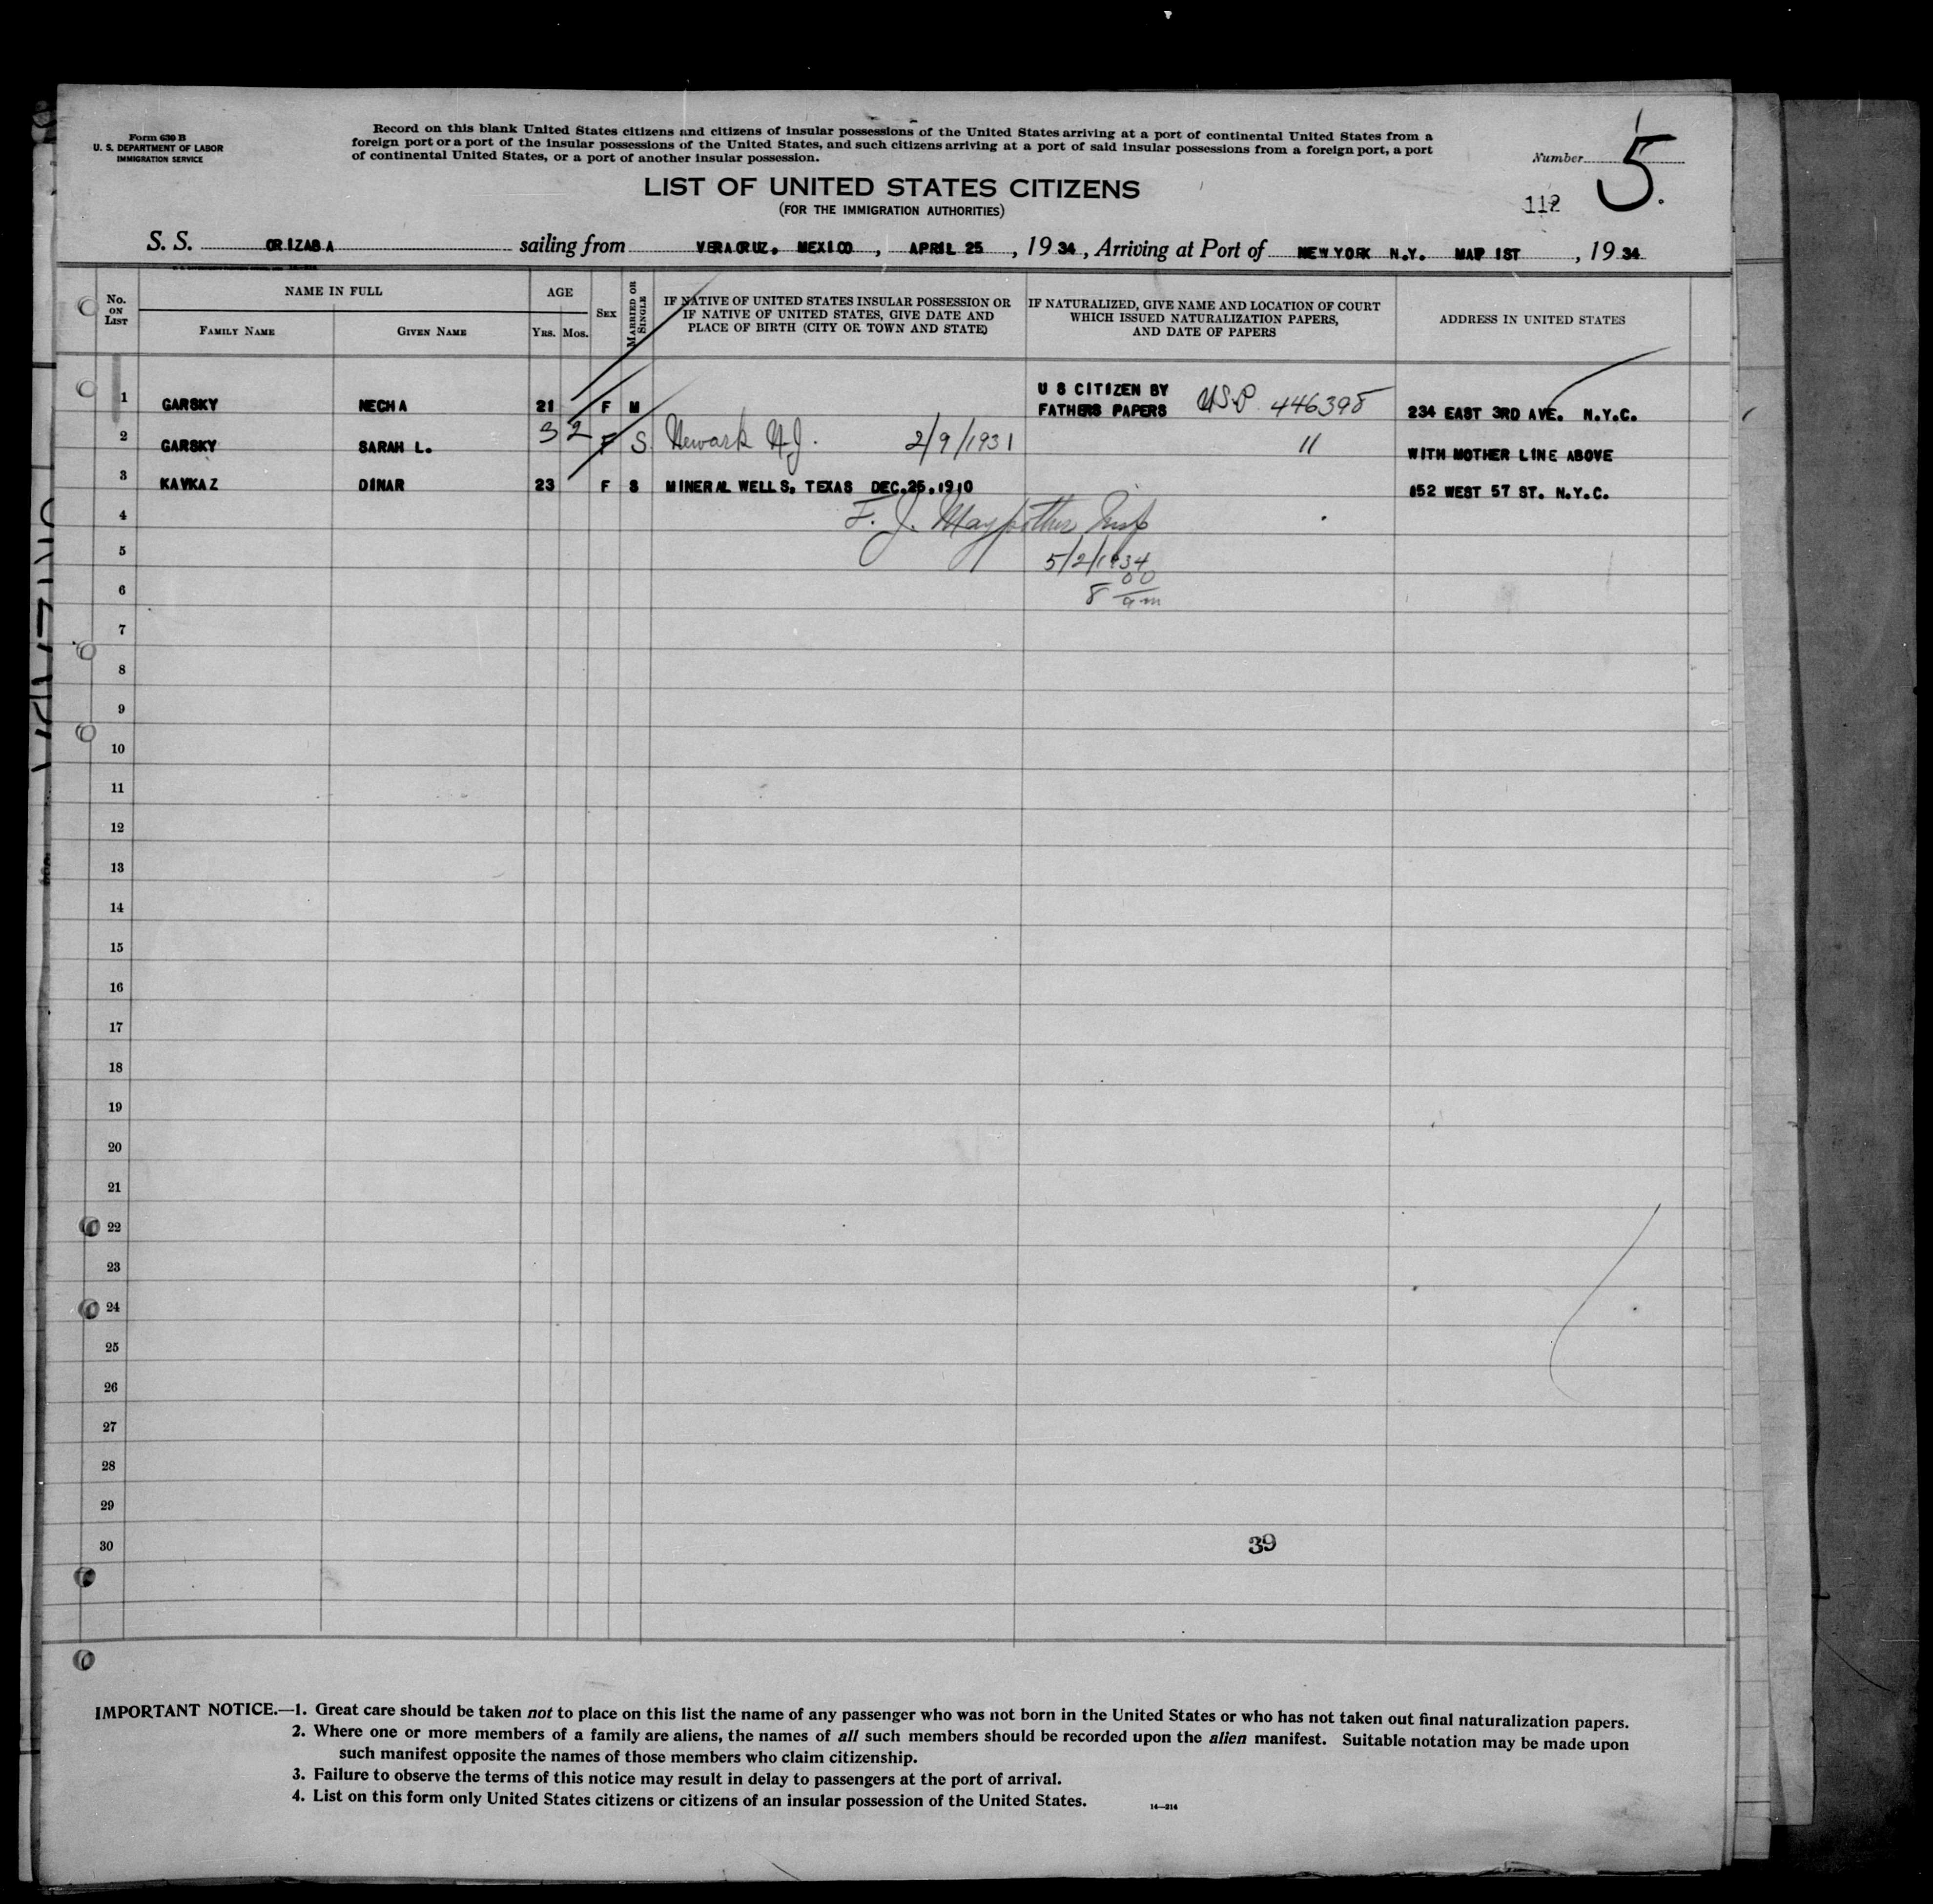 Form 630 B
U. S. DEPARTMENT OF LABOR
IMMIGRATION SERVICE
Record on this blank United States citizens and citizens of insular possessions of the United States arriving at a port of continental United States from a
foreign port or a port of the insular possessions of the United States, and such citizens arriving at a port of said insular possessions from a foreign port, a port
of continental United States, or a port of another insular possession.
Number 5.
112
LIST OF UNITED STATES CITIZENS
(FOR THE IMMIGRATION AUTHORITIES)
S. S. ORIZABA sailing from VERACRUZ. MEXICO, APRIL 25, 1934, Arriving at Port of NEW YORK N.Y. MAY 1ST, 1934
No. ON LIST
NAME IN FULL
FAMILY NAME GIVEN NAME
AGE
YRS. MOS.
SEX
MARRIED OR SINGLE
IF NATIVE OF UNITED STATES INSULAR POSSESSION OR
IF NATIVE OF UNITED STATES, GIVE DATE AND
PLACE OF BIRTH (CITY OR TOWN AND STATE)
IF NATURALIZED, GIVE NAME AND LOCATION OF COURT
WHICH ISSUED NATURALIZATION PAPERS,
AND DATE OF PAPERS
ADDRESS IN UNITED STATES
1 GARSKY NECHA 21 F M U S CITIZEN BY FATHERS PAPERS U.S.P. 446398 234 EAST 3RD AVE. N.Y.C.
2 GARSKY SARAH L. 3 2 F S Newark N.J. 2/9/1931 " WITH MOTHER LINE ABOVE
3 KAVKAZ DINAR 23 F S MINERAL WELLS, TEXAS DEC.25.1910 152 WEST 57 ST. N.Y.C.
4 F. J. Insp
5 5/2/1934
6 8 00 am
7
8
9
10
11
12
13
14
15
16
17
18
19
20
21
22
23
24
25
26
27
28
29
30
39
IMPORTANT NOTICE.—1. Great care should be taken not to place on this list the name of any passenger who was not born in the United States or who has not taken out final naturalization papers.
2. Where one or more members of a family are aliens, the names of all such members should be recorded upon the alien manifest. Suitable notation may be made upon
such manifest opposite the names of those members who claim citizenship.
3. Failure to observe the terms of this notice may result in delay to passengers at the port of arrival.
4. List on this form only United States citizens or citizens of an insular possession of the United States.
14—214